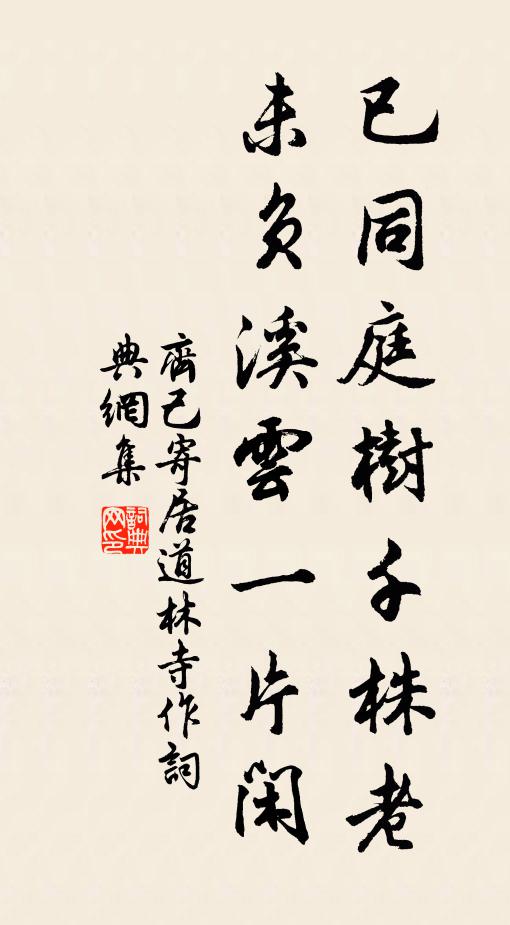 已同庭樹千株老
未負溪雲一片閑
齊己寄居道林寺作詞
典網集
詞典網印